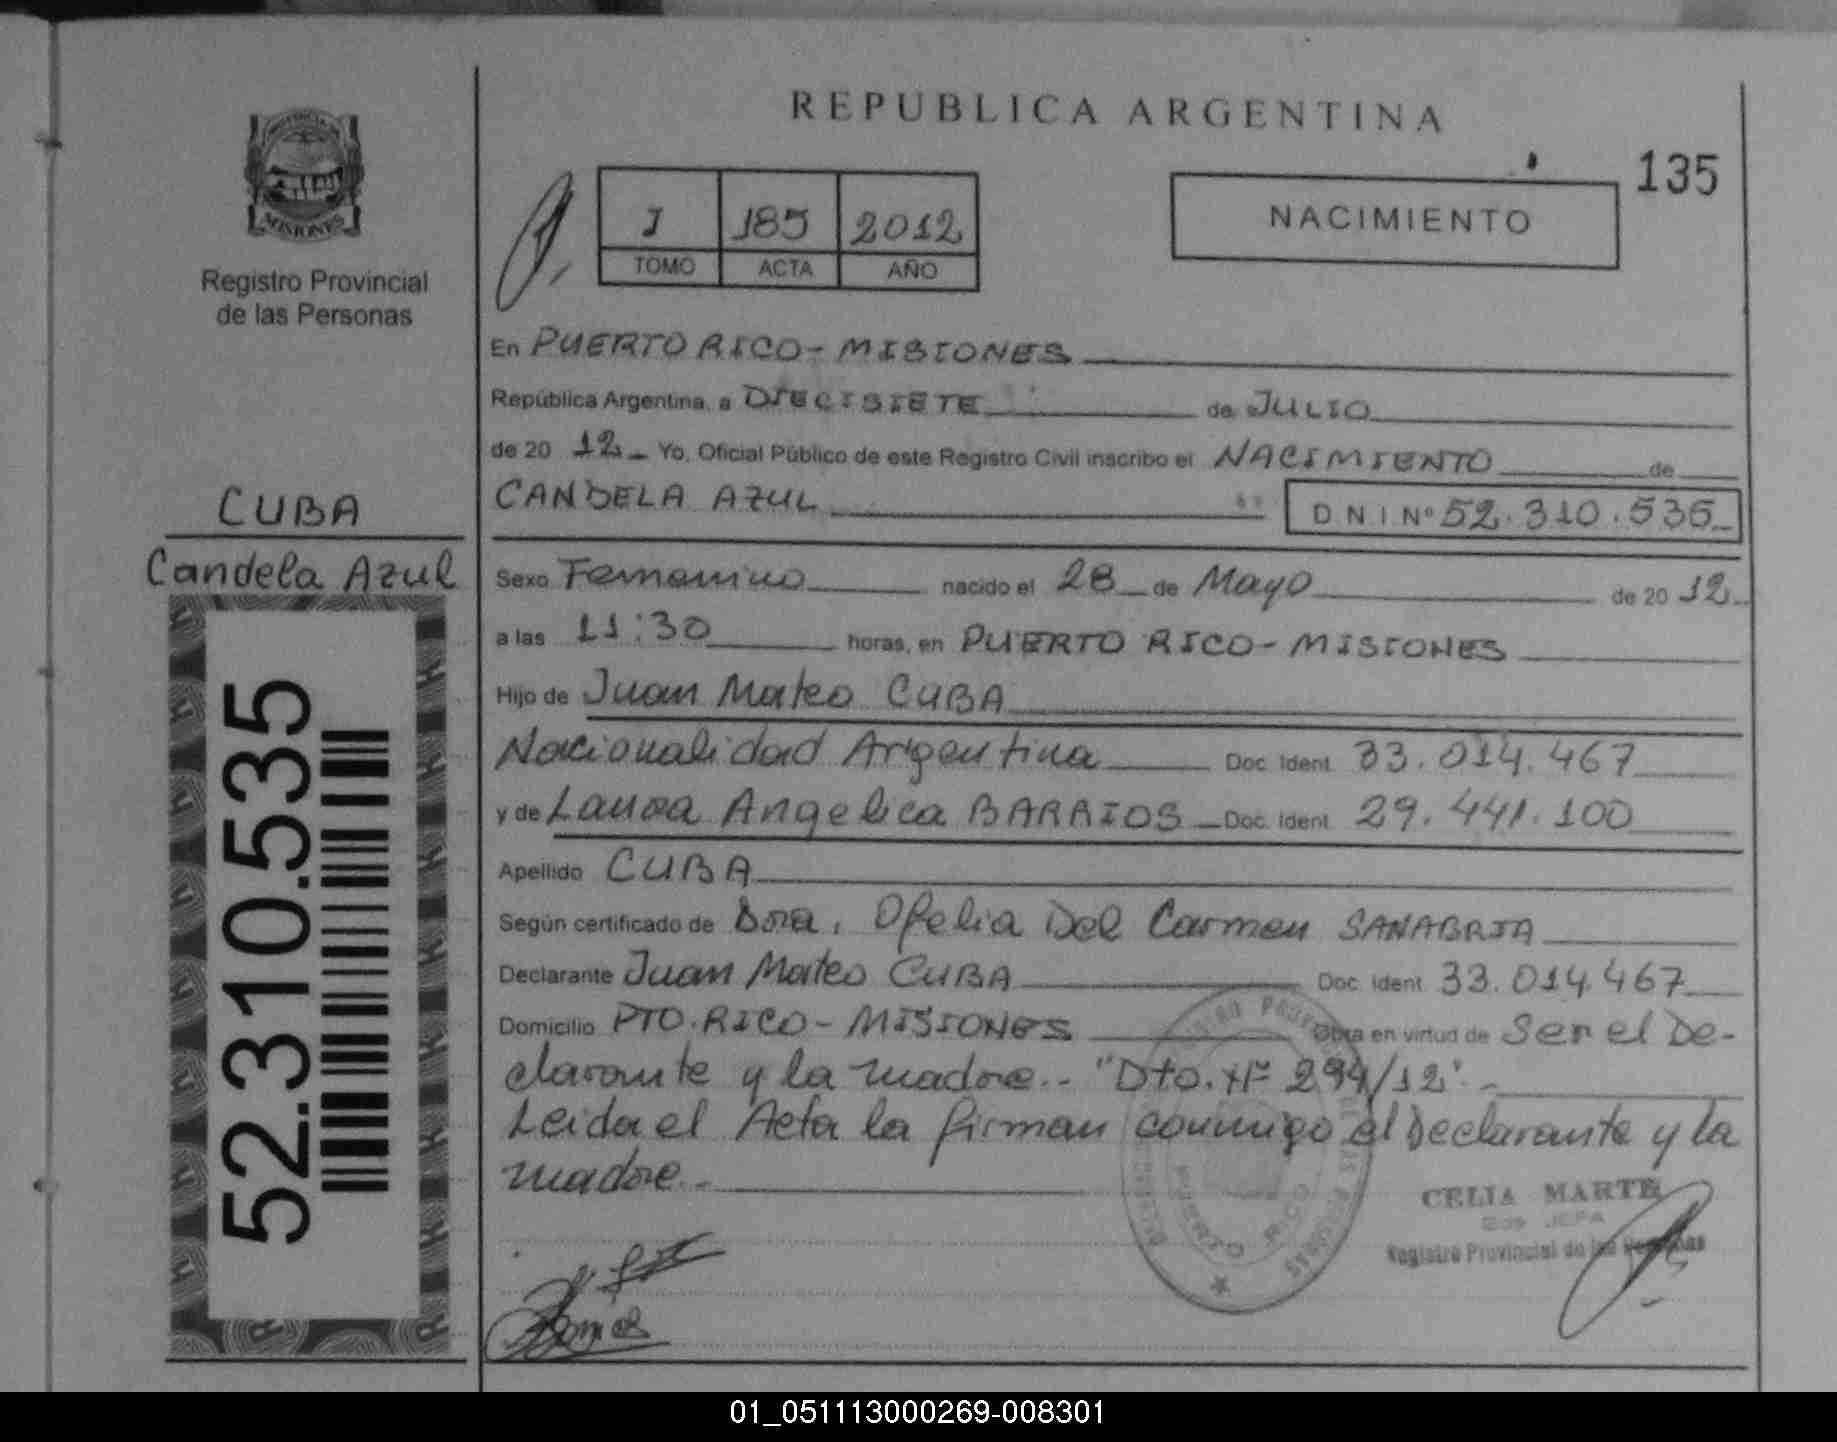 REPUBLICA ARGENTINA
135
MISIONES
Registro Provincial
de las Personas
I 185 2012
TOMO ACTA AÑO
NACIMIENTO
En PUERTO RICO - MISIONES
República Argentina, a DIECISIETE de JULIO
de 20 12 Yo, Oficial Público de este Registro Civil inscribo el NACIMIENTO de
CANDELA AZUL DNI Nº 52.310.535
CUBA
Candela Azul
52.310.535
Sexo Femenino nacido el 28 de Mayo de 20 12
a las 11:30 horas, en PUERTO RICO - MISIONES
Hijo de Juan Mateo CUBA
Nacionalidad Argentina Doc. Ident. 33.014.467
y de Laura Angelica BARRIOS Doc. Ident. 29.441.100
Apellido CUBA
Según certificado de Dra. Ofelia Del Carmen SANABRIA
Declarante Juan Mateo CUBA Doc. Ident. 33.014.467
Domicilio PTO. RICO - MISIONES Obra en virtud de Ser el De-
clarante y la madre.- "Dto. Nº 294/12".-
Leida el Acta la firman conmigo el Declarante y la
madre.-
PUERTO RICO
CELIA MARTE
JEFA
Registro Provincial de las Personas
01_051113000269-008301